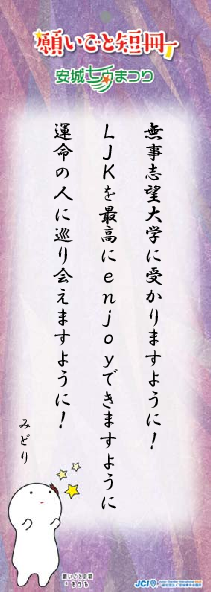 願いごと短冊
安城七夕まつり
無事志望大学に受かりますように！
LJKを最高にenjoyできますように
運命の人に巡り会えますように！
みどり
願いごと短冊
JCI